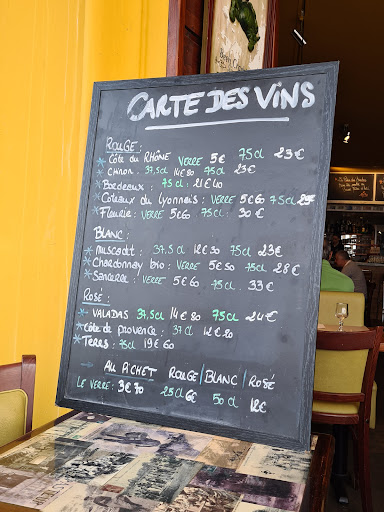 CARTE DES VINS
ROUGE :
* Côte du RHÔNE VERRE 5€ 75cl 23€
* CHINON. 37.5cl 14€80 75cl 23€
* Bordeaux : 75cl : 21€40
* Coteaux du Lyonnais : VERRE 5€60 75cl
* Fleurie : VERRE 5€60 75cl : 30€
BLANC :
* MUSCADET : 37.5cl 12€30 75cl 23€
* Chardonnay bio : VERRE 5€50 75cl 28€
* Sancerre : VERRE 5€60 75cl . 33€
ROSÉ :
* VALADAS 37,5cl 14€80 75cl 24€
* Côte de provence : 37cl 12€20
* TERRS : 75cl 19€60
AU PICHET ROUGE / BLANC / ROSÉ
LE VERRE : 3€70 25cl 6€ 50cl 12€